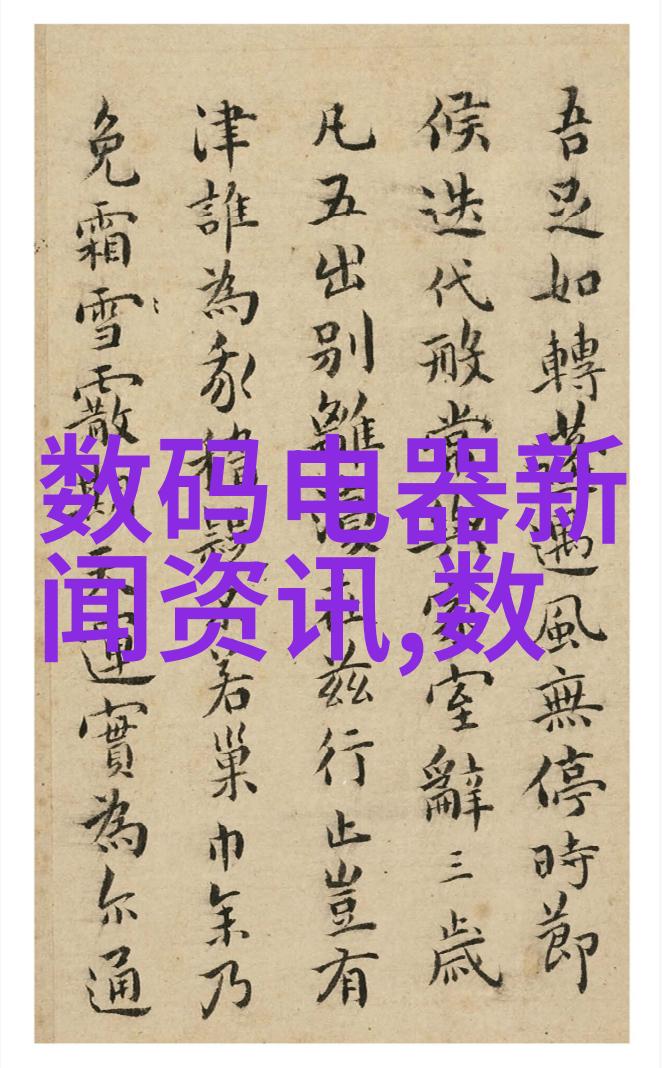 吾足如轉蓬遇風無停時節
候迭代般常與家室辭三歲
凡五出別離須在茲行止豈有
津誰為若巢巾乃
免霜雪霰運實為尔通
数码电器新
闻资讯,数